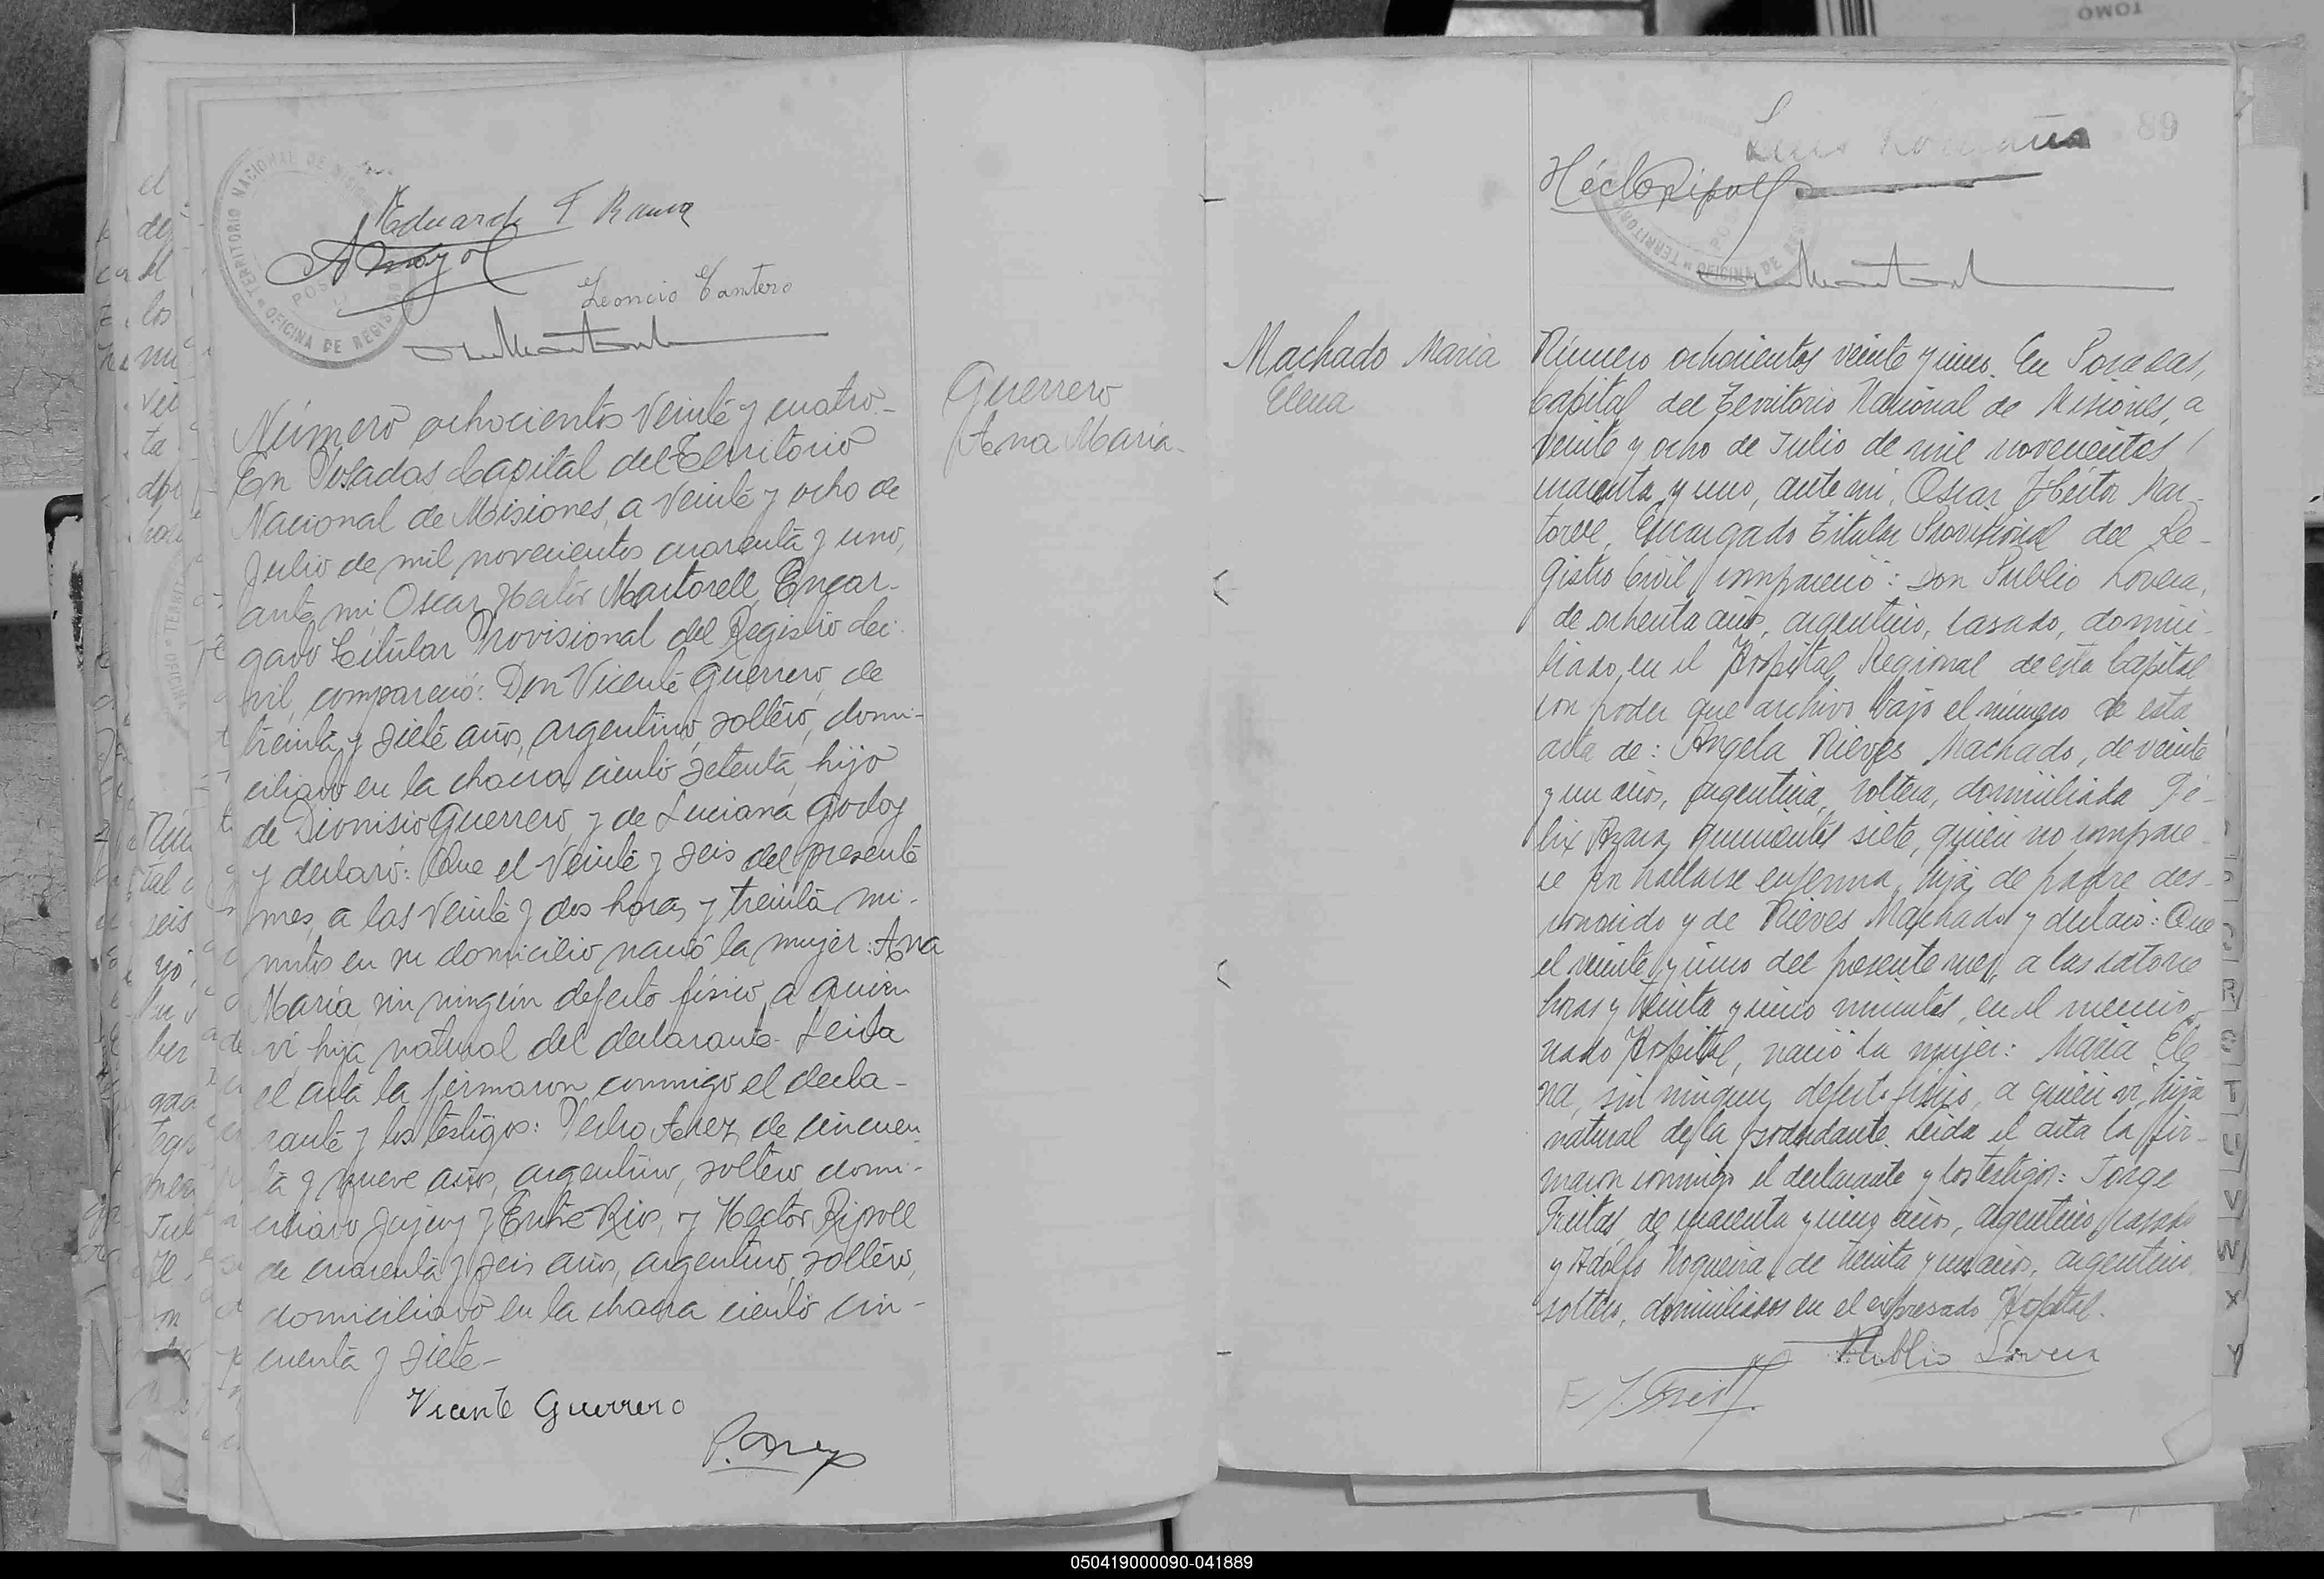 TOMO
TERRITORIO NACIONAL DE MISIONES
OFICINA DE REGIS
POS
Eduardo F
Leoncio Cantero
Número ochocientos veinte y cuatro.-
En Posadas Capital del Territorio
Nacional de Misiones, a veinte y ocho de
Julio de mil novecientos cuarenta y uno,
ante mi, Oscar Héctor Martorell, Encar-
gado Titular Provisional del Registro Ci-
vil, compareció: Don Vicente Guerrero, de
treinta y siete años, argentino, soltero, domi-
ciliado en la chacra ciento setenta, hijo
de Dionisio Guerrero y de Luciana Godoy
y declaró: Que el veinte y seis del presente
mes, a las veinte y dos horas y treinta mi-
nutos en su domicilio nació la mujer: Ana
Maria, sin ningún defecto físico, a quien
vi, hija natural del declarante. Leida
el acta la firmaron conmigo el decla-
rante y los testigos: Pedro de cincuen
ta y nueve años, argentino, soltero, domi-
ciliado Jujuy y Entre Rios, y Hector Ripoll
de cuarenta y seis años, argentino, soltero,
domiciliado en la chacra ciento cin-
cuenta y siete-
Vicente Guerrero
Guerrero
Ana Maria.
Machado Maria
Elena
89
Luis Romaña
Héctor Ripoll
TERRITORIO
OFICINA DE REGIS
Número ochocientos veinte y cinco. En Posadas,
Capital del Territorio Nacional de Misiones, a
veinte y ocho de Julio de mil novecientos
cuarenta y uno, ante mi, Oscar Héctor Mar-
torell, Encargado Titular Provisional del Re-
gistro Civil, compareció: Don Publio Lovera,
de ochenta años, argentino, casado, domici-
liado en el Hospital Regional de esta Capital
con poder que archivo bajo el número de esta
acta de: Angela Nieves Machado, de veinte
y un años, argentina, soltera, domiciliada Fé-
lix Azara quinientos siete, quien no compare-
ce por hallarse enferma, hija de padre des-
conocido y de Nieves Machado y declaró: Que
el veinte y cinco del presente mes, a las catorce
horas y treinta y cinco minutos, en el mencio-
nado Hospital, nació la mujer: Maria Ele
na, sin ningun defecto fisico, a quien vi, hija
natural de la poderdante. Leida el acta la fir-
maron conmigo el declarante y los testigos: Jorge
Freitas, de cuarenta y cinco años, argentino, casado
y Adolfo Nogueira, de treinta y un años, argentino
soltero, domiciliados en el expresado Hospital.
Publio Lovera
R
S
T
U
V
W
X
Y
050419000090-041889